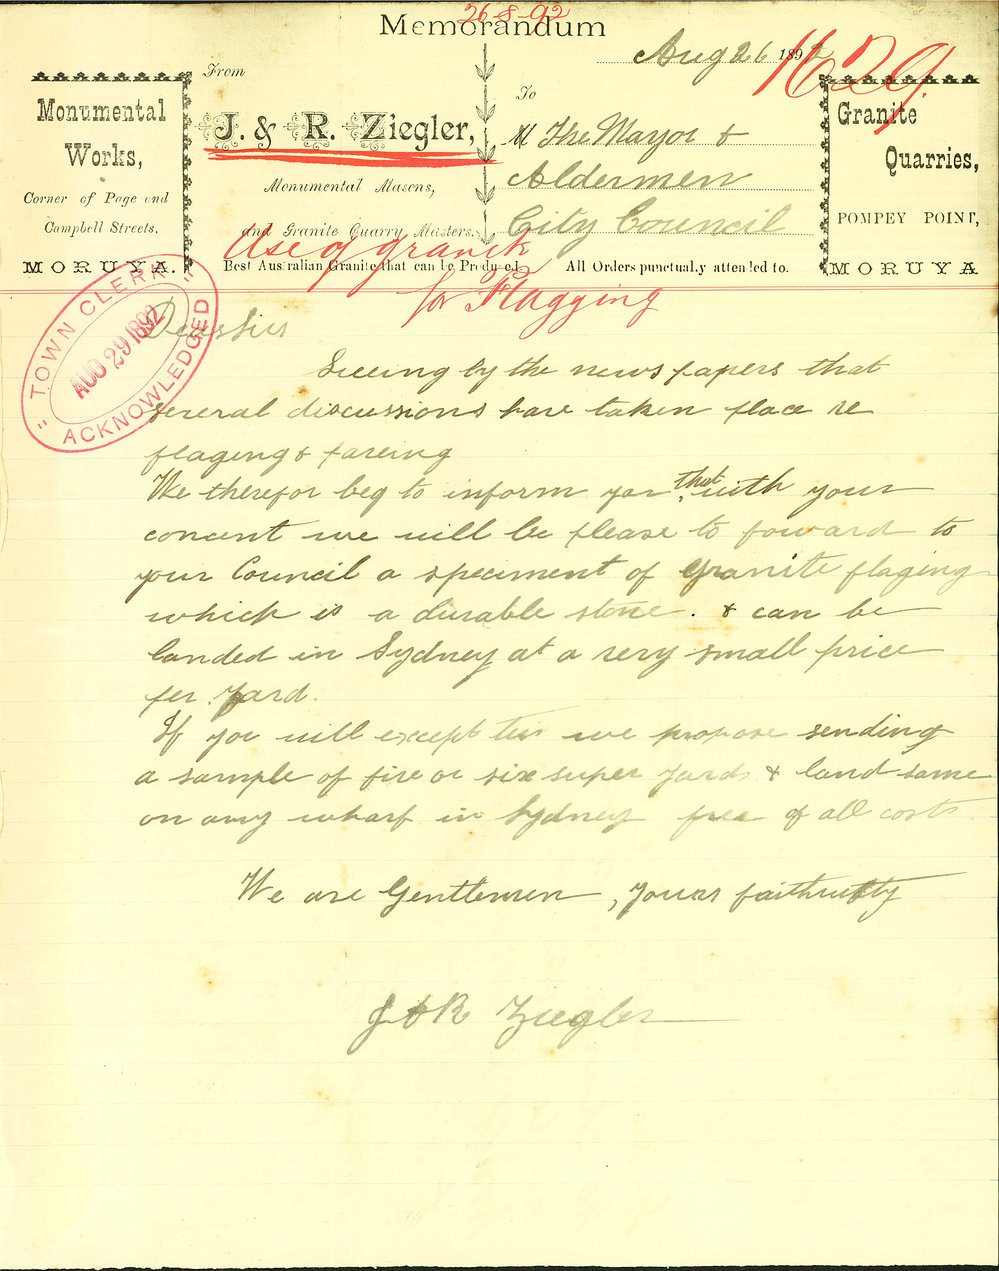 26-8-92
Memorandum
Aug 26 1892
1629
From
To
Monumental
Works,
Corner of Page and
Campbell Streets,
MORUYA.
J. & R. Ziegler,
Monumental Masons,
and Granite Quarry Masters.
M The Mayor &
Aldermen
City Council
Granite
Quarries,
POMPEY POINT,
MORUYA
Use of granite
for Flagging
Best Australian Granite that can be Produced.
All Orders punctually attended to.
TOWN CLERK
AUG 29 1892
ACKNOWLEDGED
Dear Sirs
Seeing by the newspapers that
several discussions have taken place re
flaging & paveing
We therefor beg to inform you that with your
concent we will be please to foward to
your Council a speciment of Granite flaging
which is a durable stone. & can be
landed in Sydney at a very small price
per yard.
If you will except this we propose sending
a sample of five or six super yards & land same
on any wharf in Sydney free of all costs
We are Gentlemen, Yours faithfully
J & R Ziegler